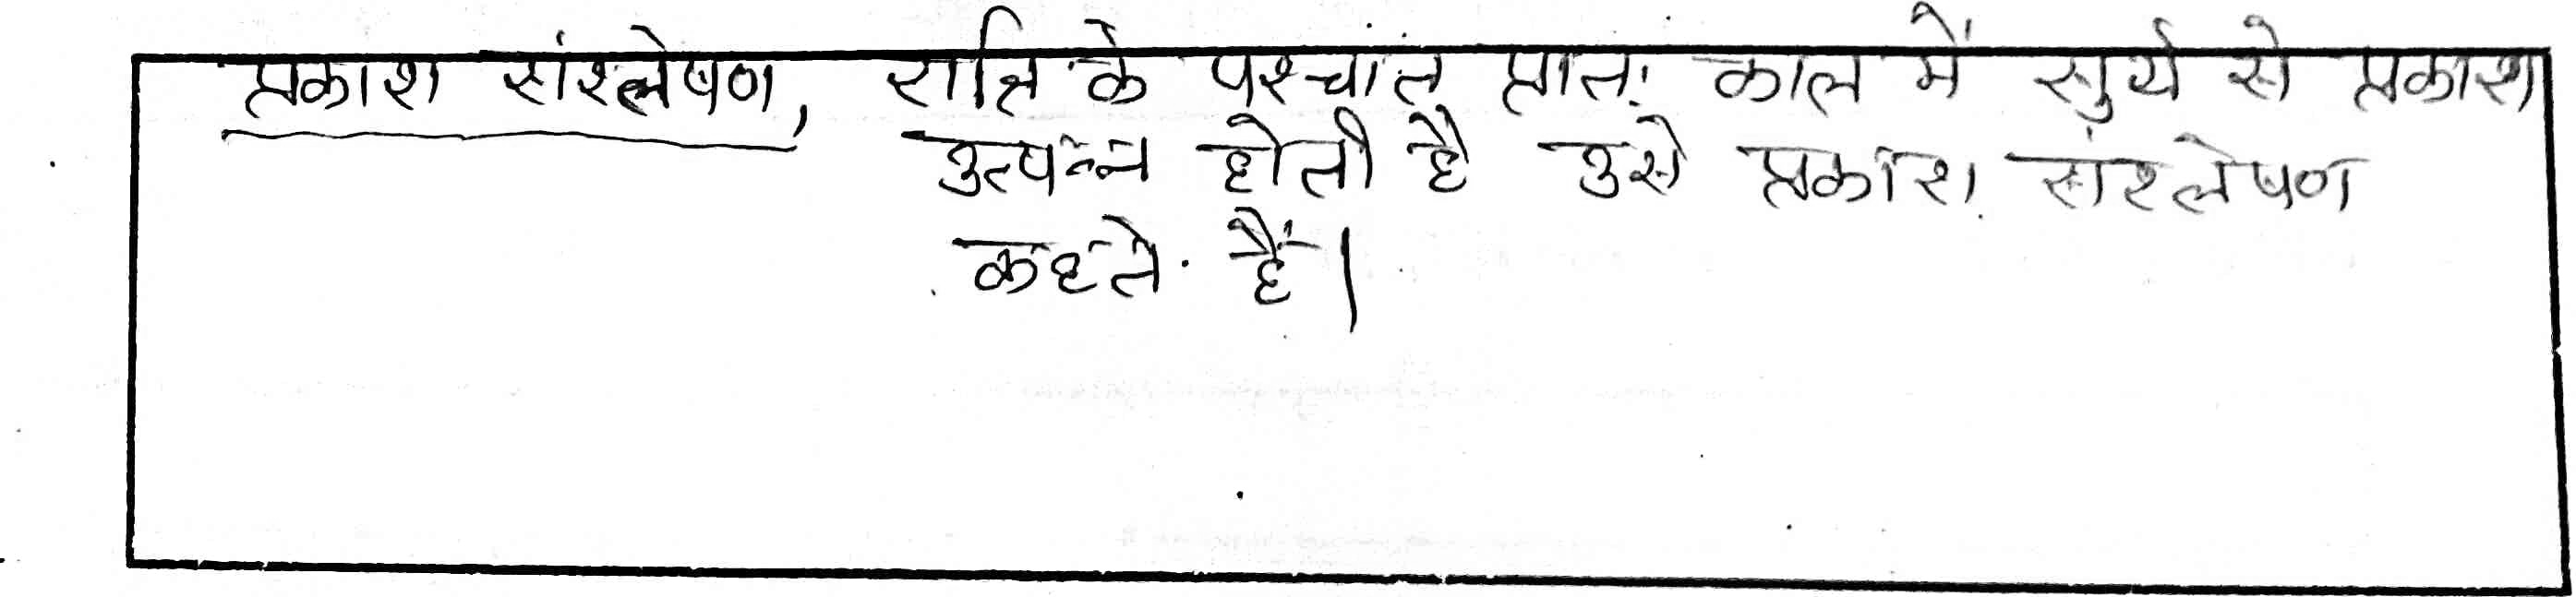 प्रकाश संश्लेषण, रात्रि के पश्चात प्रात: काल में सुर्य से प्रकाश
उत्पन्न होती है उसे प्रकाश संश्लेषण
कहते हैं।